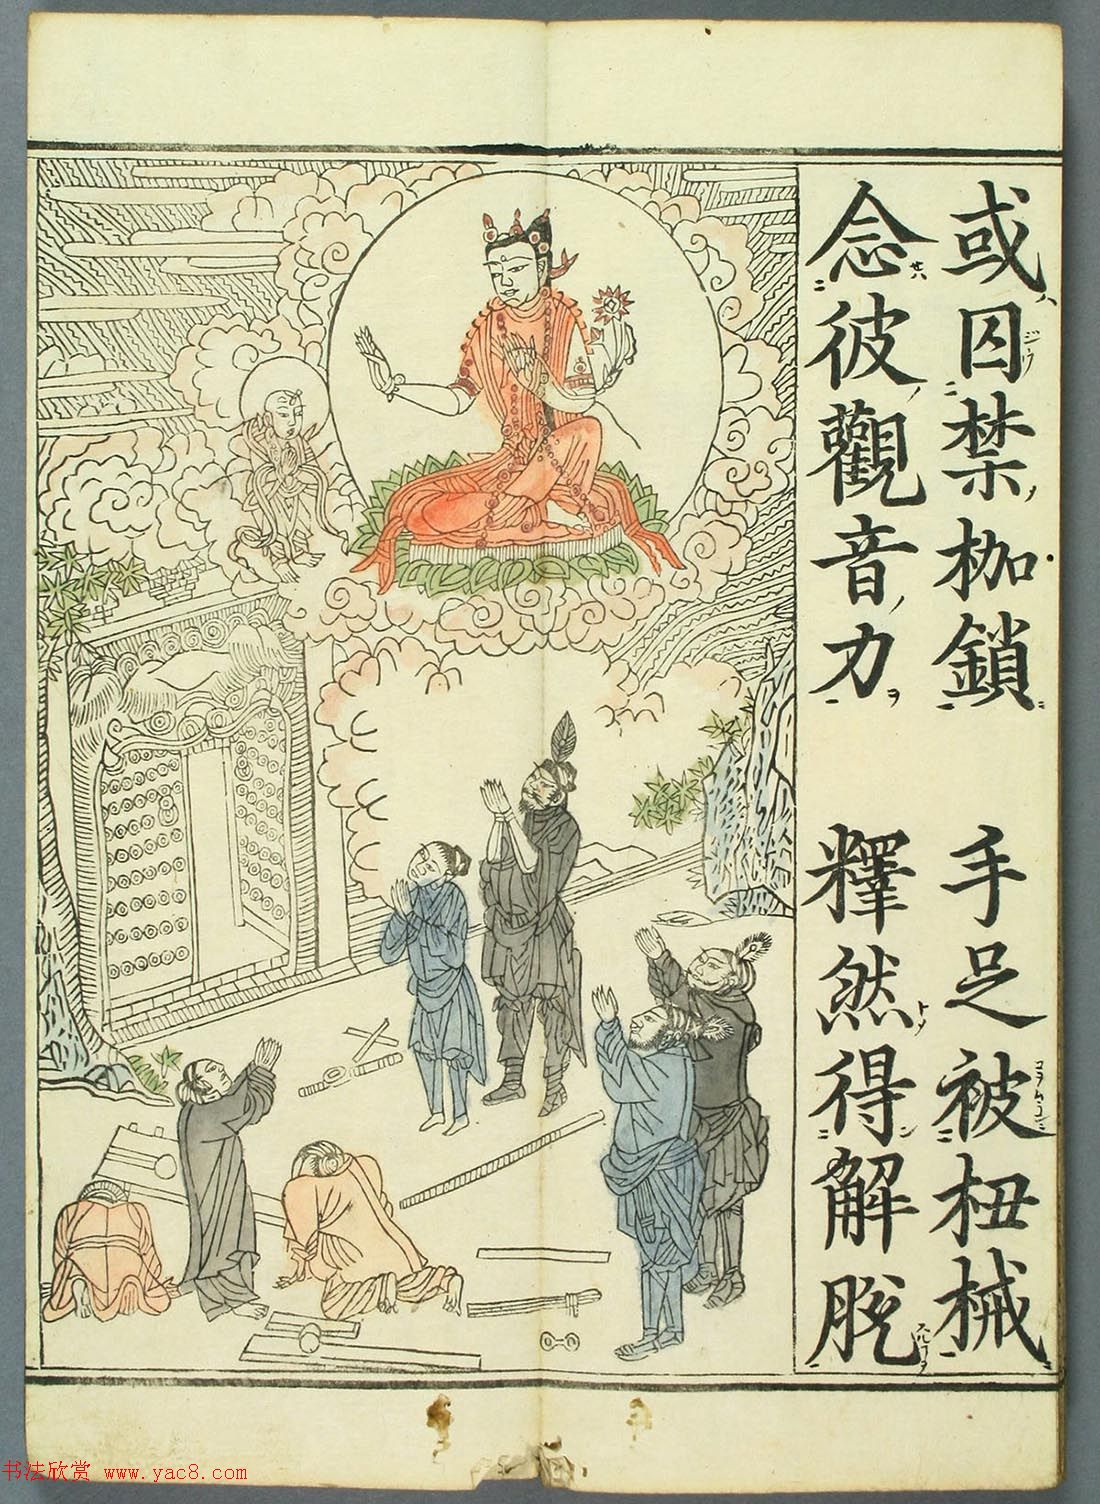 或囚禁枷鎖　手足被杻械
念彼觀音力　釋然得解脱
书法欣赏 www.yac8.com